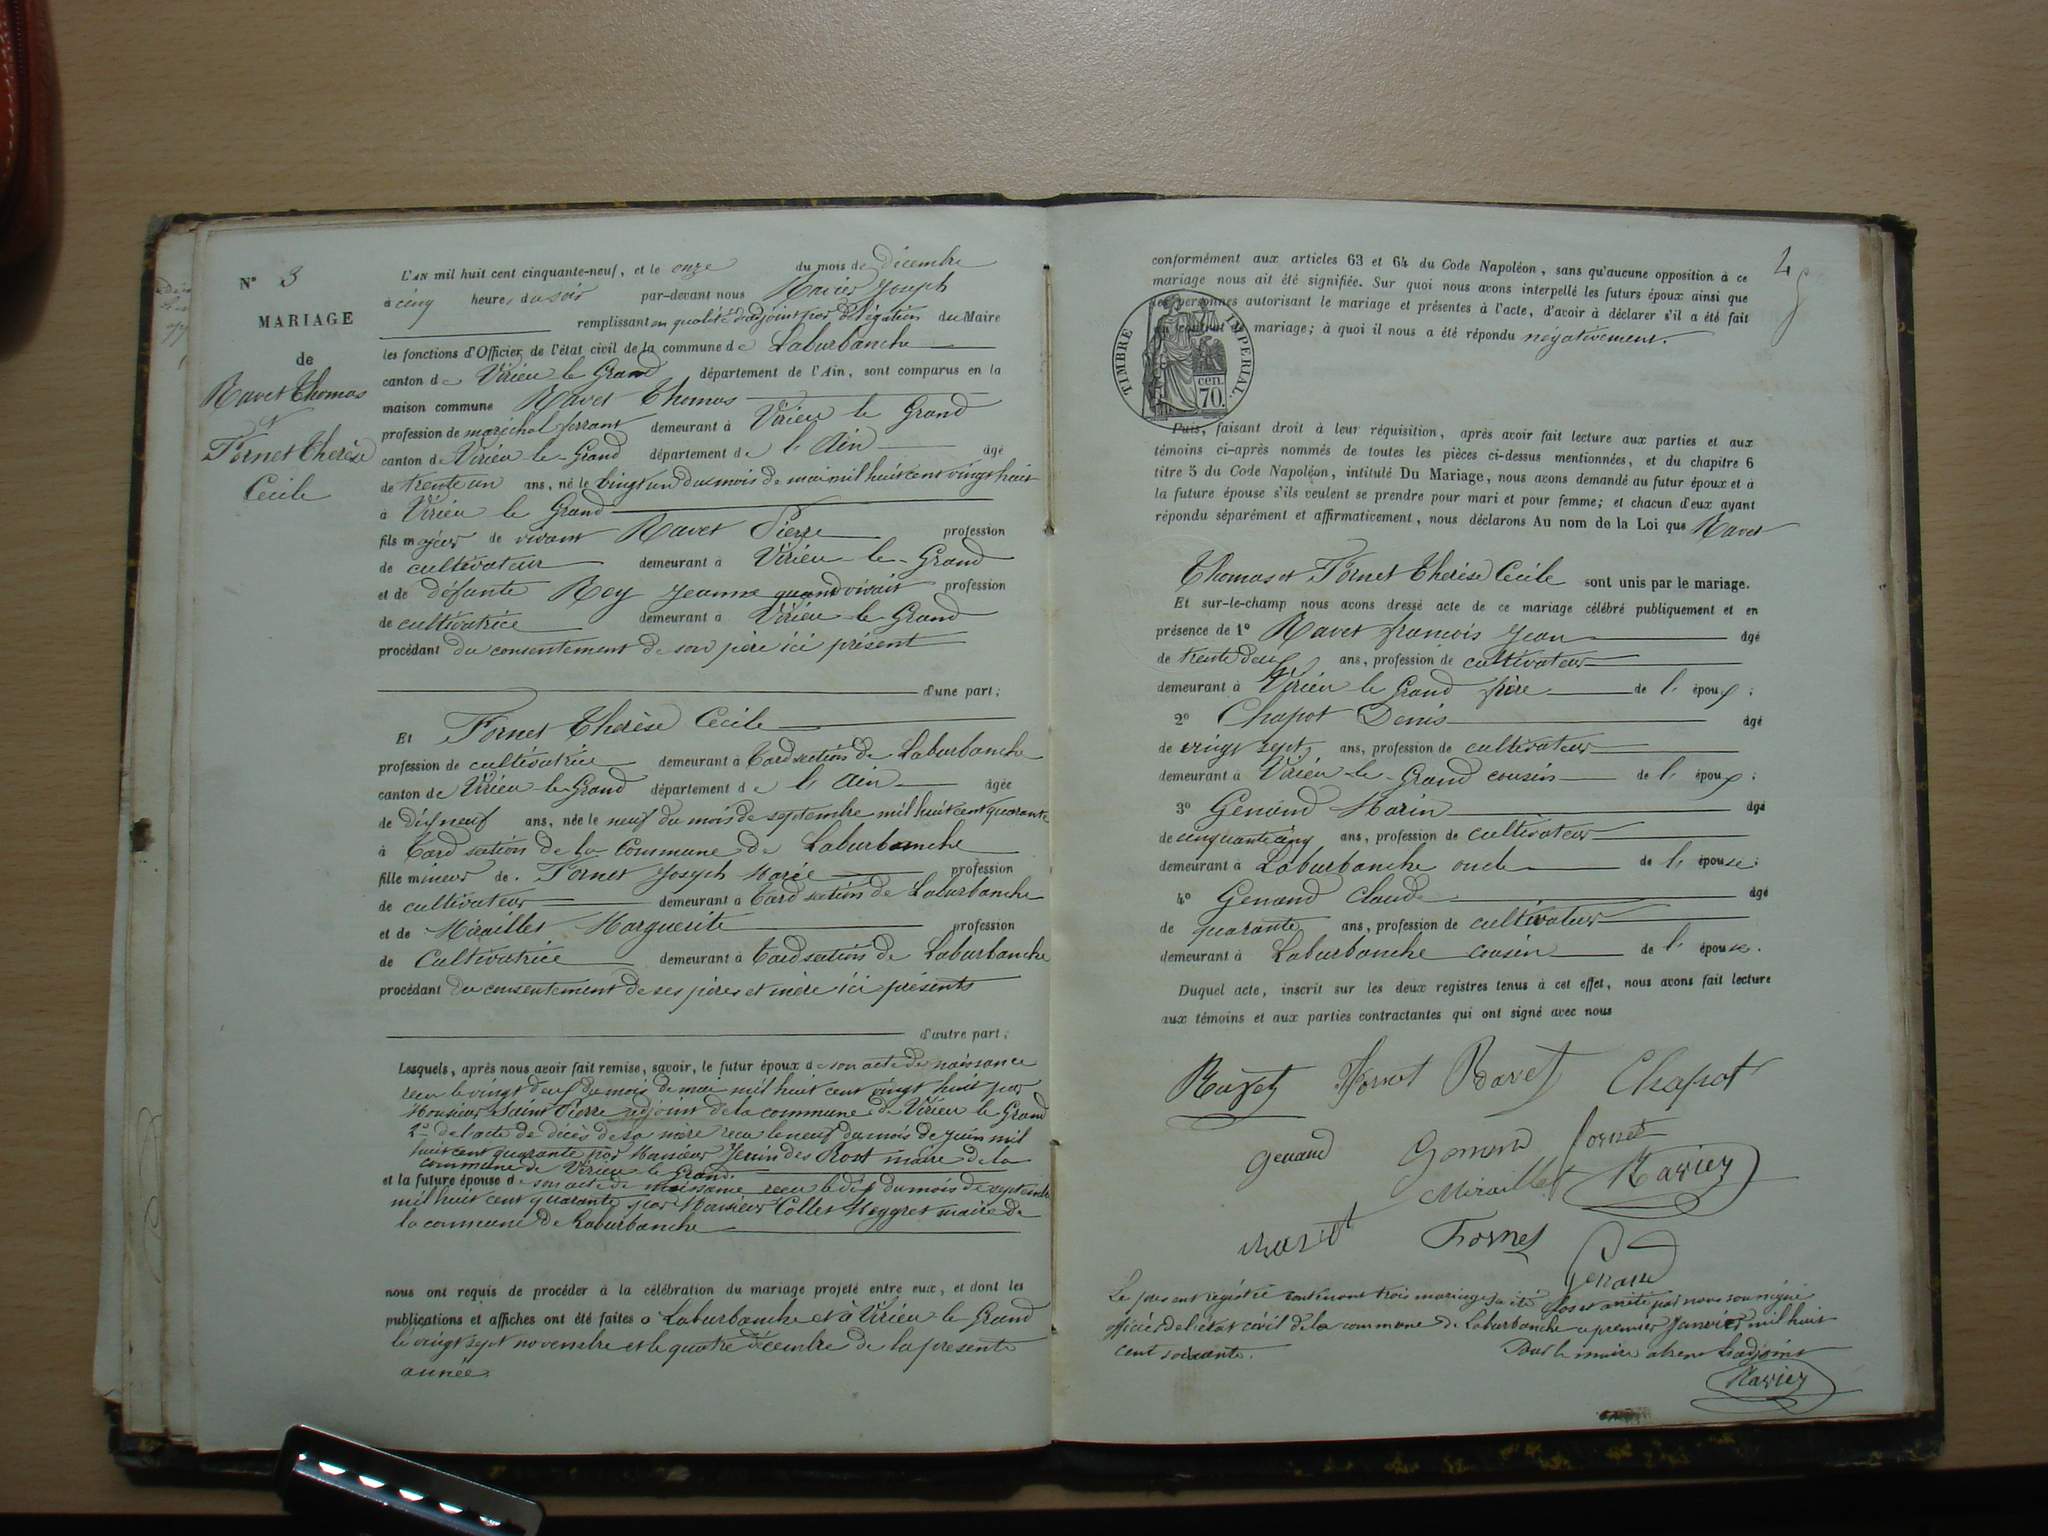 N° 3
MARIAGE
de
Ravet Thomas
&
Fornet Therèse
Cecile
L'AN mil huit cent cinquante-neuf, et le onze du mois de décembre
à cinq heures du soir par-devant nous Ravier Joseph
remplissant en qualité d'adjoint par délégation du Maire
les fonctions d'Officier de l'état civil de la commune de Laburbanche
canton de Virieu le Grand département de l'Ain, sont comparus en la
maison commune Ravet Thomas
profession de marechal ferrant demeurant à Virieu le Grand
canton de Virieu le Grand département de l'Ain âgé
de trente un ans, né le vingt un du mois de mai mil huit cent vingt huit
à Virieu le Grand
fils majeur de vivant Ravet Pierre profession
de cultivateur demeurant à Virieu le Grand
et de défunte Rey Jeanne quand vivait profession
de cultivatrice demeurant à Virieu le Grand
procédant du consentement de son père ici présent
d'une part ;
Et Fornet Therèse Cecile
profession de cultivatrice demeurant à Tard section de Laburbanche
canton de Virieu le Grand département de l'Ain âgée
de dix neuf ans, née le neuf du mois de septembre mil huit cent quarante
à Tard section de la Commune de Laburbanche
fille mineur de Fornet Joseph Marie profession
de cultivateur demeurant à Tard section de Laburbanche
et de Miraillet Marguerite profession
de Cultivatrice demeurant à Tard section de Laburbanche
procédant du consentement de ses père et mère ici présents
d'autre part ;
Lesquels, après nous avoir fait remise, savoir, le futur époux de son acte de naissance
recu le vingt deux du mois de mai mil huit cent vingt huit par
Monsieur Saint Pierre adjoint de la commune de Virieu le Grand
2° de l'acte de décès de sa mère recu le neuf du mois de Juin mil
huit cent quarante par Monsieur des Rost maire de la
commune de Virieu le Grand.
et la future épouse de son acte de naissance recu le dix du mois de septembre
mil huit cent quarante par Monsieur Collet Meygret maire de
la commune de Laburbanche
nous ont requis de procéder à la célébration du mariage projeté entre eux, et dont les
publications et affiches ont été faites à Laburbanche et à Virieu le Grand
le vingt sept novembre et le quatre décembre de la presente
année.
conformément aux articles 63 et 64 du Code Napoléon, sans qu'aucune opposition à ce
mariage nous ait été signifiée. Sur quoi nous avons interpellé les futurs époux ainsi que
les personnes autorisant le mariage et présentes à l'acte, d'avoir à déclarer s'il a été fait
un contrat de mariage ; à quoi il nous a été répondu négativement.
TIMBRE IMPERIAL.
cen.
70.
Puis, faisant droit à leur réquisition, après avoir fait lecture aux parties et aux
témoins ci-après nommés de toutes les pièces ci-dessus mentionnées, et du chapitre 6
titre 5 du Code Napoléon, intitulé Du Mariage, nous avons demandé au futur époux et à
la future épouse s'ils veulent se prendre pour mari et pour femme ; et chacun d'eux ayant
répondu séparément et affirmativement, nous déclarons Au nom de la Loi que Ravet
Thomas et Fornet Therèse Cecile sont unis par le mariage.
Et sur-le-champ nous avons dressé acte de ce mariage célébré publiquement et en
présence de 1° Ravet francois Jean âgé
de trente deux ans, profession de cultivateur
demeurant à Virieu le Grand frère de l'époux ;
2° Chapot Denis âgé
de vingt sept ans, profession de cultivateur
demeurant à Virieu le Grand cousin de l'époux ;
3° Genand Marin âgé
de cinquante cinq ans, profession de cultivateur
demeurant à Laburbanche oncle de l'épouse ;
4° Genand Claude âgé
de quarante ans, profession de cultivateur
demeurant à Laburbanche cousin de l'épouse.
Duquel acte, inscrit sur les deux registres tenus à cet effet, nous avons fait lecture
aux témoins et aux parties contractantes qui ont signé avec nous
Ravet Fornet Ravet Chapot
genand Genand fornet
Miraillet Ravier
Fornet
Genand
Le present régistre contenant trois mariages a été clos et arrêté par nous soussigné
officier de l'état civil de la commune de Laburbanche ce premier Janvier mil huit
cent soixante. Pour le maire absent l'adjoint
Ravier